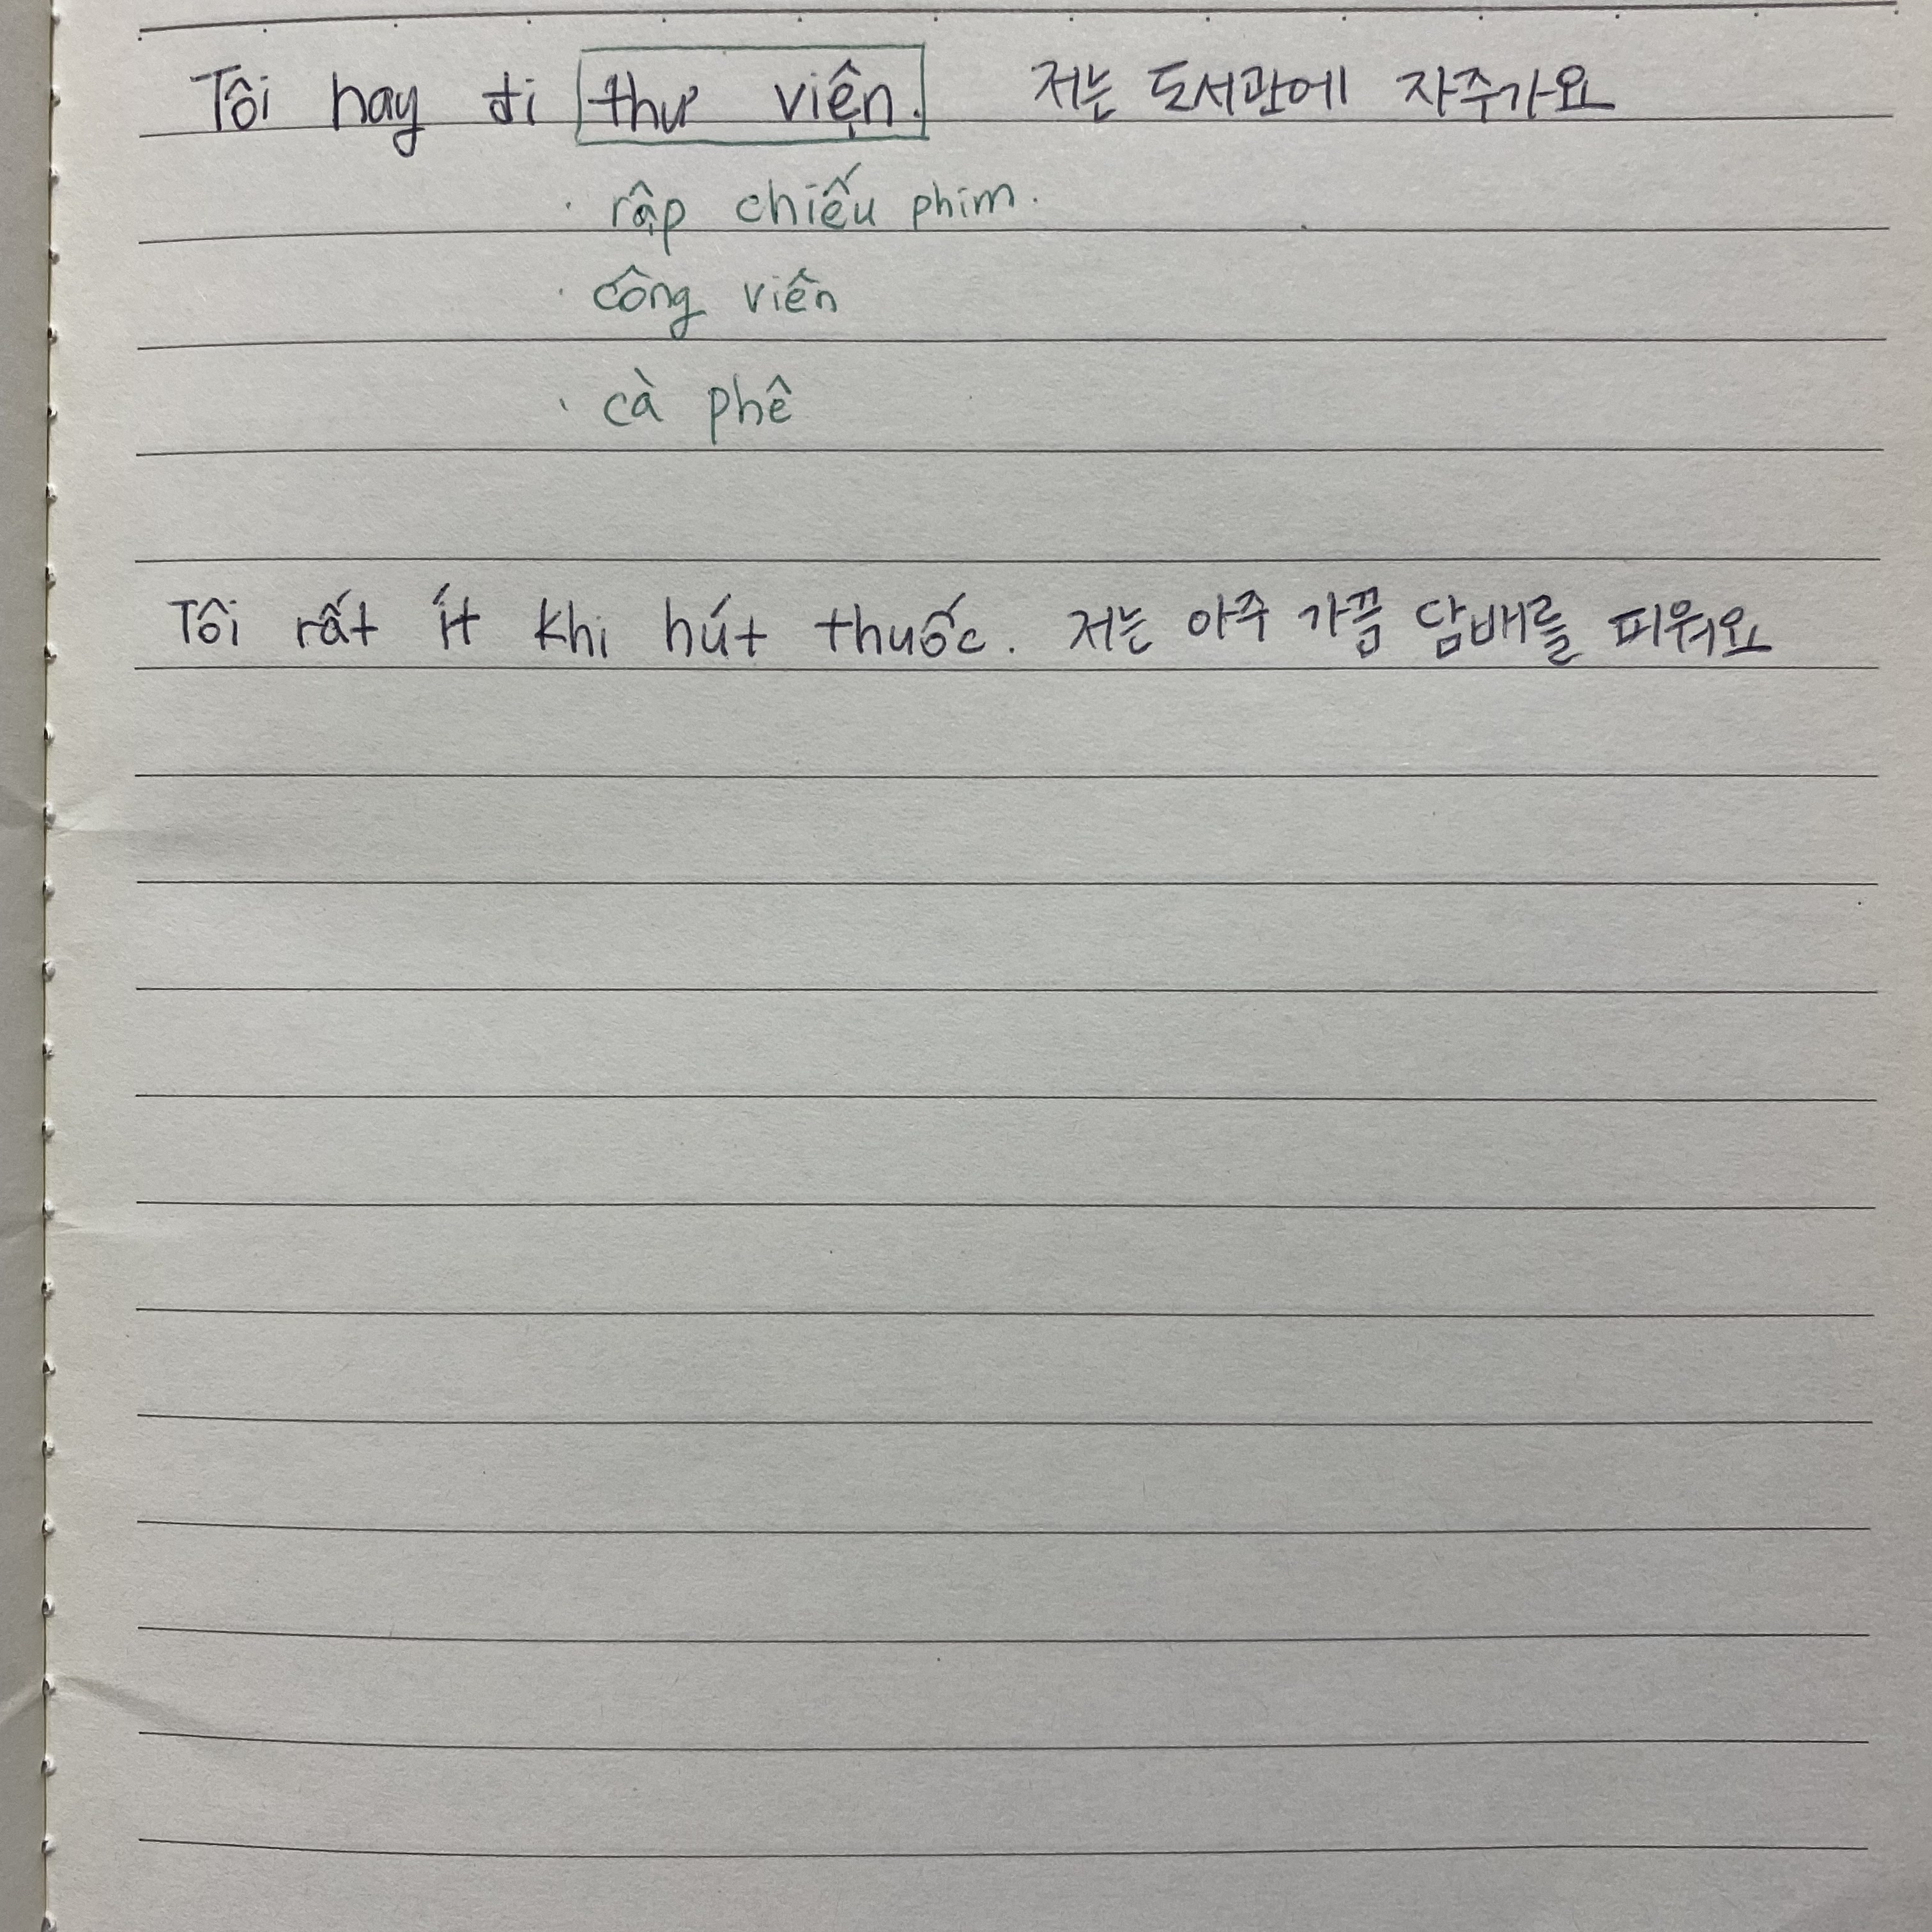 Tôi hay đi thư viện. 저는 도서관에 자주가요
· rập chiếu phim.
· công viên
· cà phê
Tôi rất ít khi hút thuốc. 저는 아주 가끔 담배를 피워요